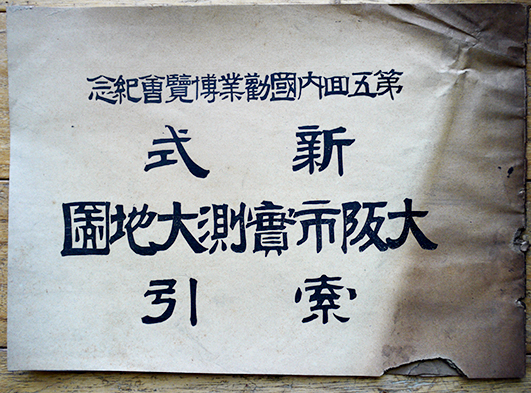 第五回内國勸業博覽會紀念
新式
大阪市實測大地圖
索引